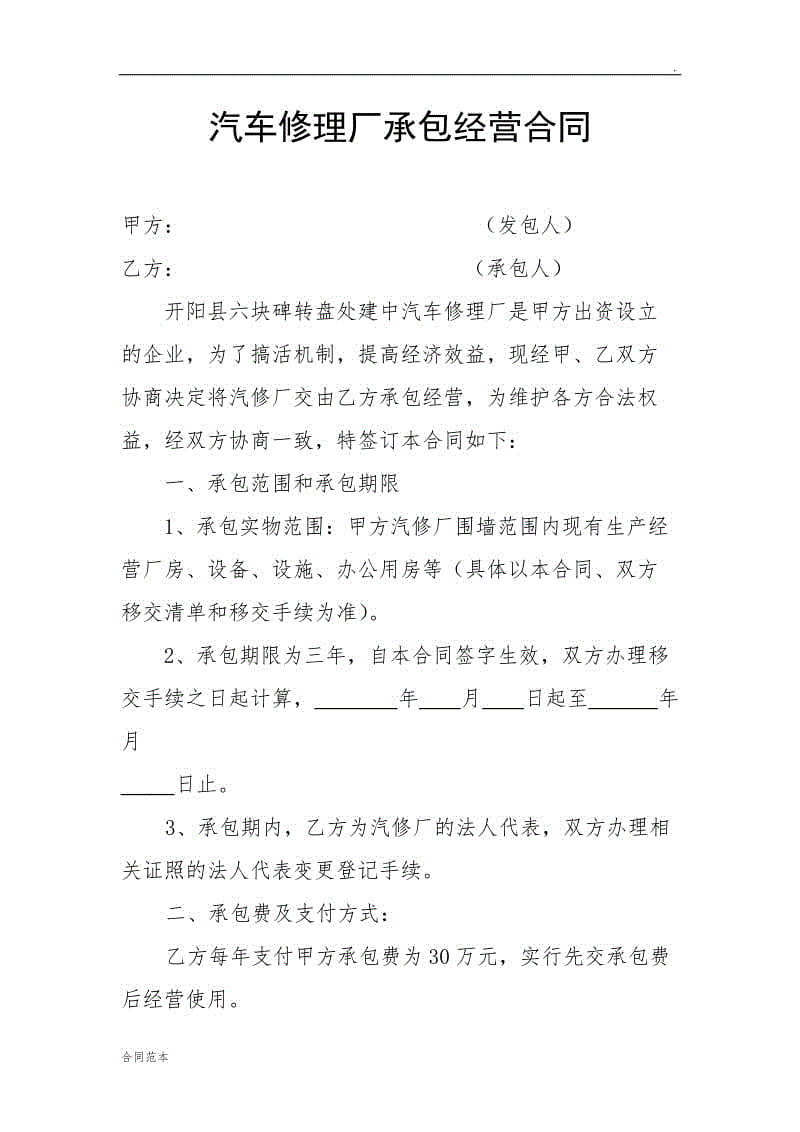 汽车修理厂承包经营合同
甲方： （发包人）
乙方： （承包人）
开阳县六块碑转盘处建中汽车修理厂是甲方出资设立
的企业，为了搞活机制，提高经济效益，现经甲、乙双方
协商决定将汽修厂交由乙方承包经营，为维护各方合法权
益，经双方协商一致，特签订本合同如下：
一、承包范围和承包期限
1、承包实物范围：甲方汽修厂围墙范围内现有生产经
营厂房、设备、设施、办公用房等（具体以本合同、双方
移交清单和移交手续为准）。
2、承包期限为三年，自本合同签字生效，双方办理移
交手续之日起计算，________年____月____日起至_______年
月
_____日止。
3、承包期内，乙方为汽修厂的法人代表，双方办理相
关证照的法人代表变更登记手续。
二、承包费及支付方式：
乙方每年支付甲方承包费为 30 万元，实行先交承包费
后经营使用。
合同范本